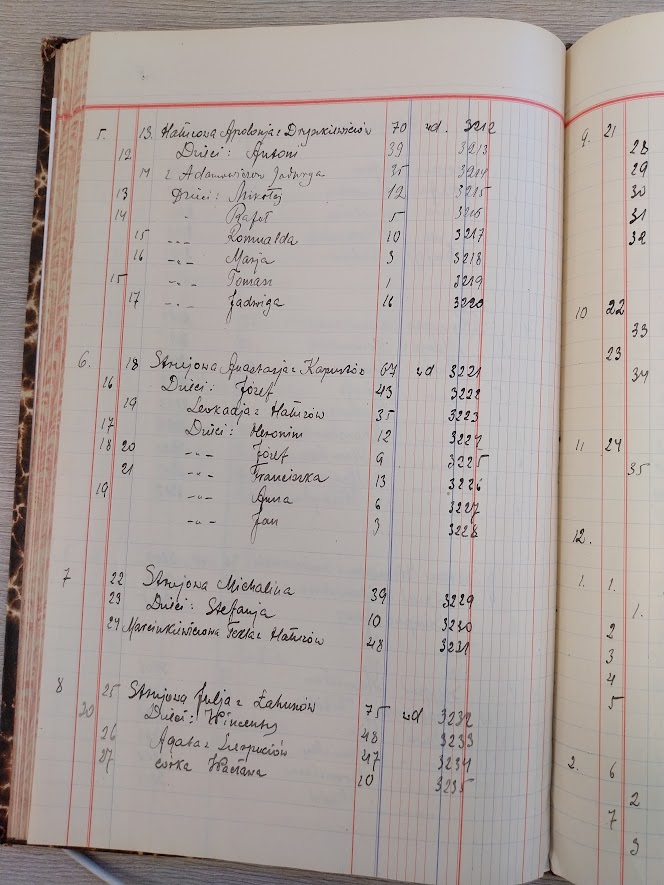 5. 13. Hatucowa Apolonja z Dryszkiewiczów 70 wd. 3212
12 Dzieci: Antoni 39 3213
14 z Adamowiczów Jadwiga 35 3214
13 Dzieci: Mikołaj 12 3215
14 " Rafał 5 3216
15 -"- Romualda 10 3217
16 -"- Marja 3 3218
15 -"- Tomasz 1 3219
17 -"- Jadwiga 16 3220
6. 18 Strujowa Anastazja z Kapustów 67 wd 3221
16 Dzieci: Józef 43 3222
19 Leokadja z Haturów 35 3223
17 Dzieci: Heronim 12 3224
18 20 -"- Józef 9 3225
21 -"- Franciszka 13 3226
19 -"- Anna 6 3227
-"- Jan 3 3228
7 22 Strujowa Michalina 39 3229
23 Dzieci: Stefanja 10 3230
24 Marcinkiewiczowa Tekla z Haturów 48 3231
8 25 Strujowa Julja z Łahunów 75 wd 3232
20 Dzieci: Wincenty 48 3233
26 Agata z 47 3234
27 córka Wacława 10 3235
9. 21
28
29
30
31
32
10 22
33
23
34
11 24
35
12.
1. 1.
1.
2
3
4
5
2. 6
2
7
3